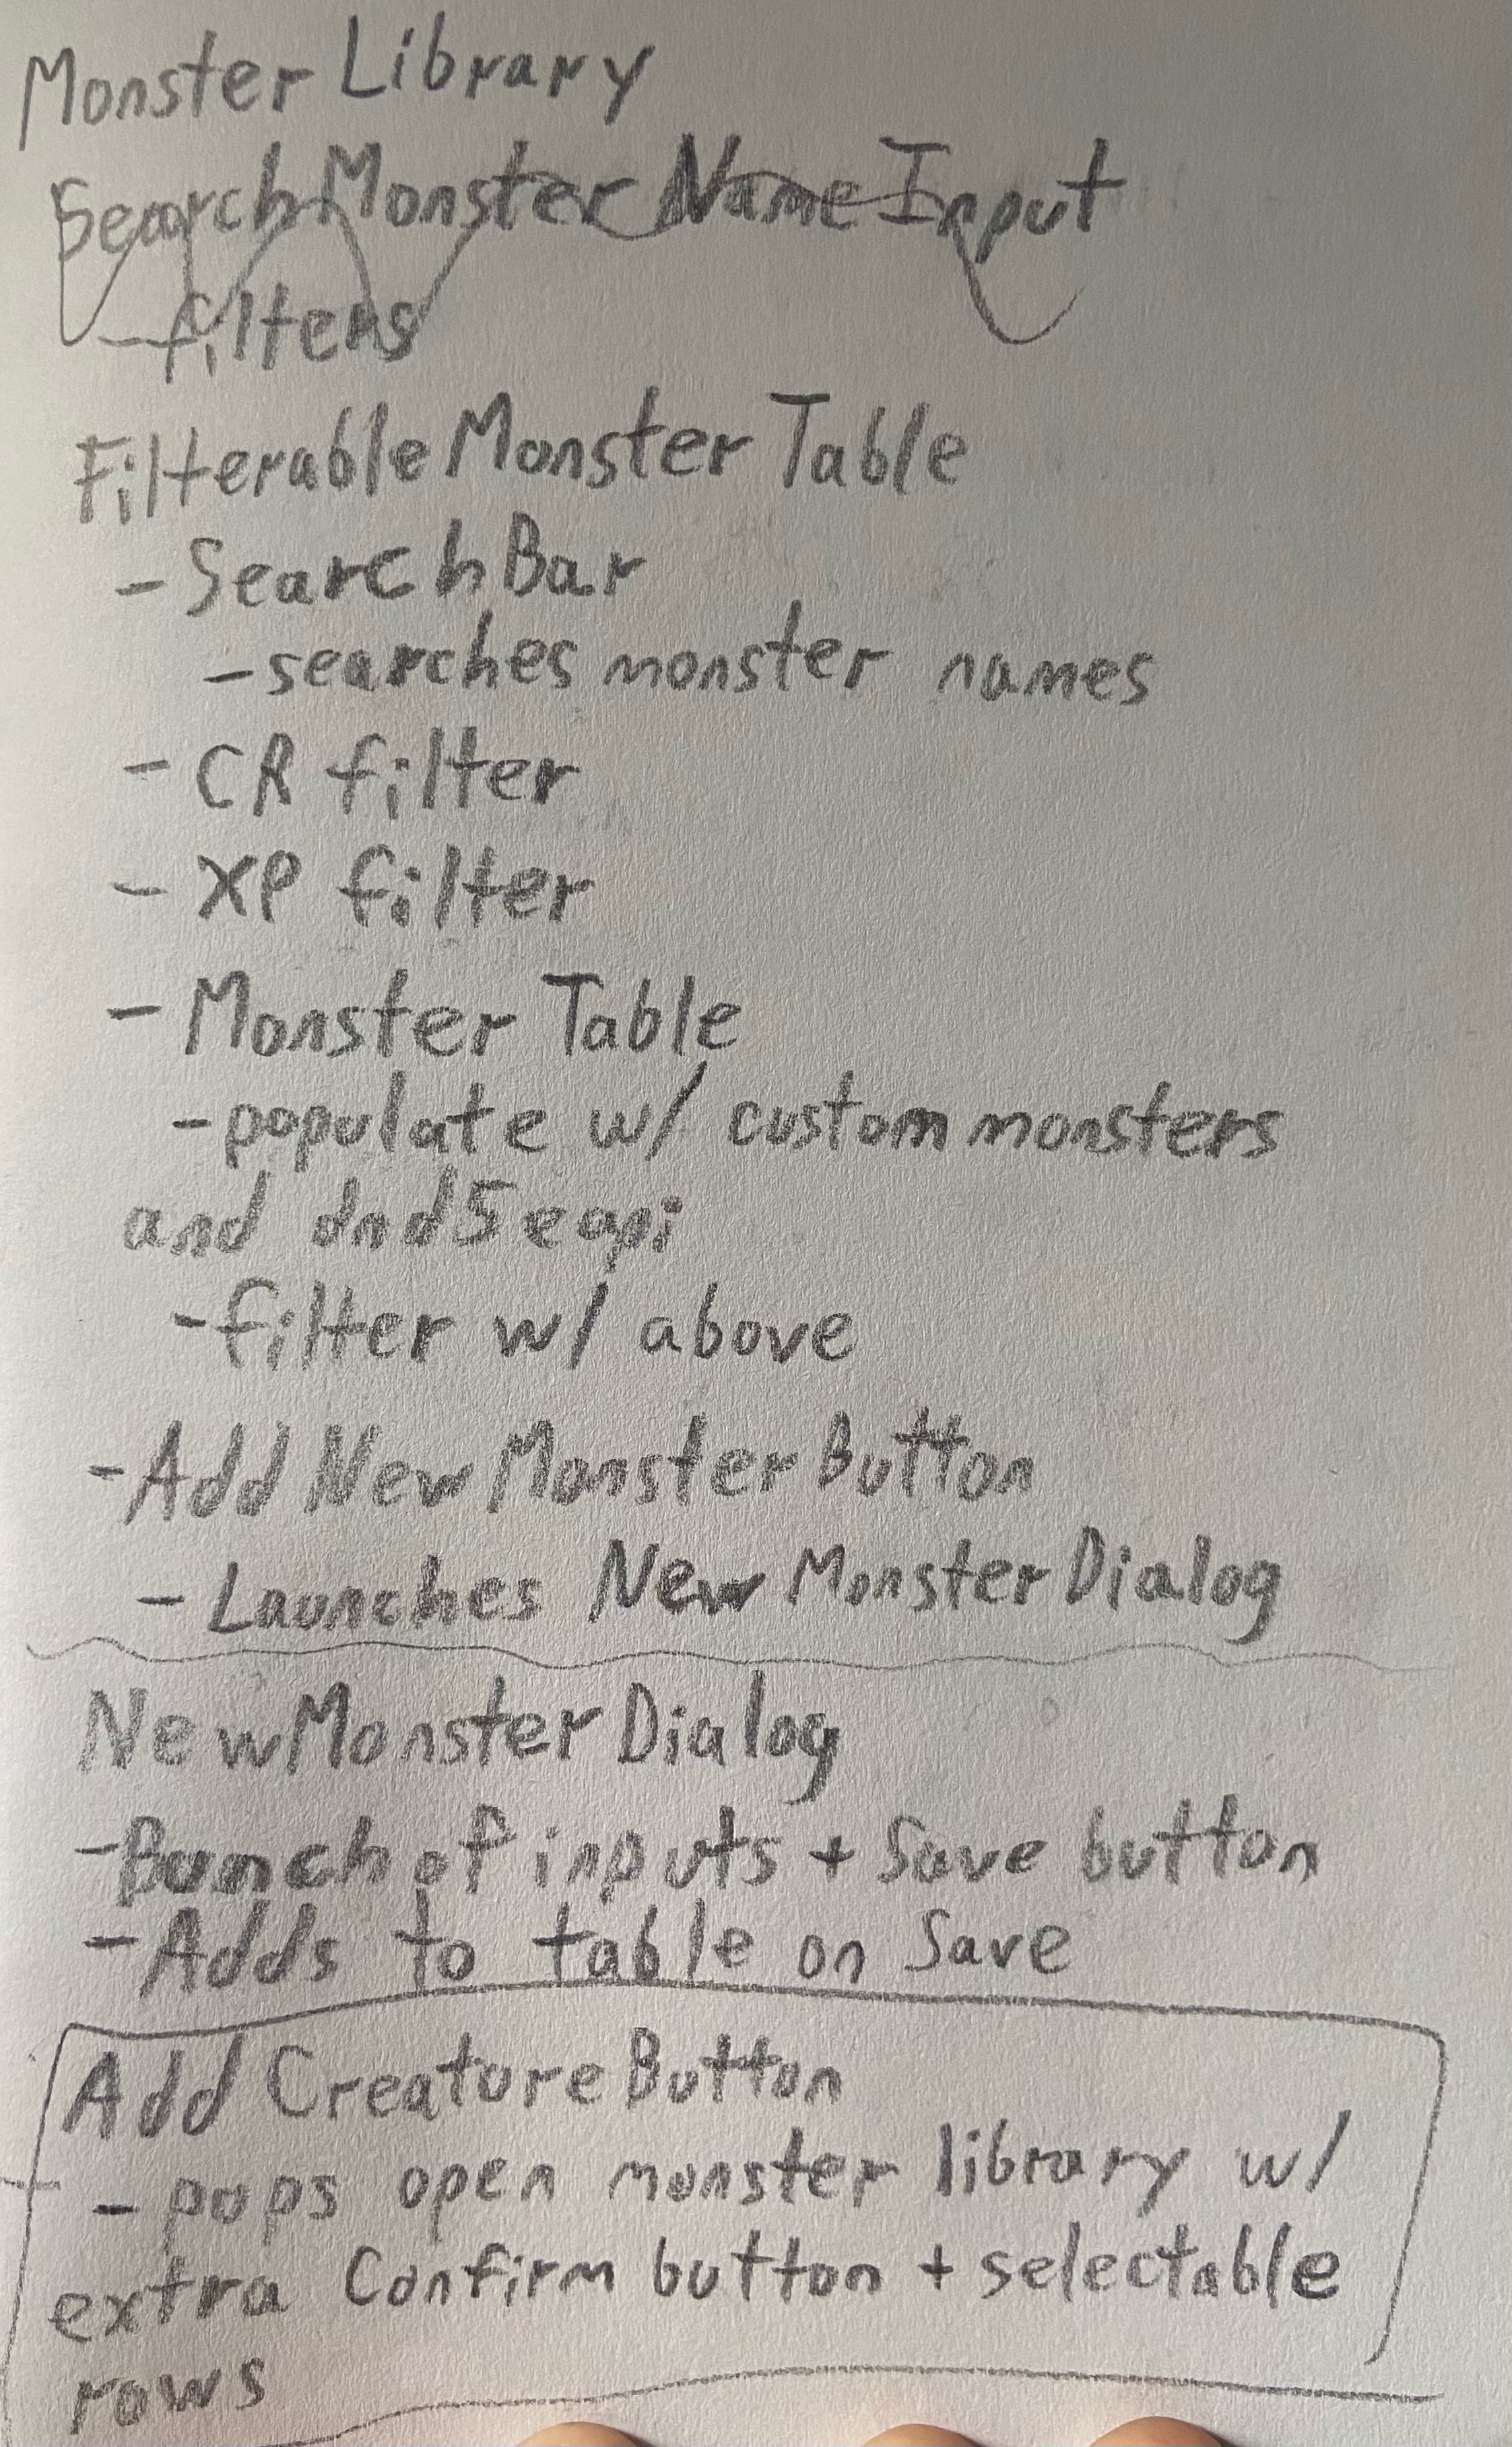 Monster Library
SearchMonsterNameInput
- filters
FilterableMonsterTable
- SearchBar
- searches monster names
- CR filter
- XP filter
- Monster Table
- populate w/ custom monsters
and dnd5eapi
- filter w/ above
- AddNewMonsterButton
- Launches NewMonsterDialog
NewMonsterDialog
- Bunch of inputs + Save button
- Adds to table on Save
Add CreatureButton
- pops open monster library w/
extra Confirm button + selectable
rows